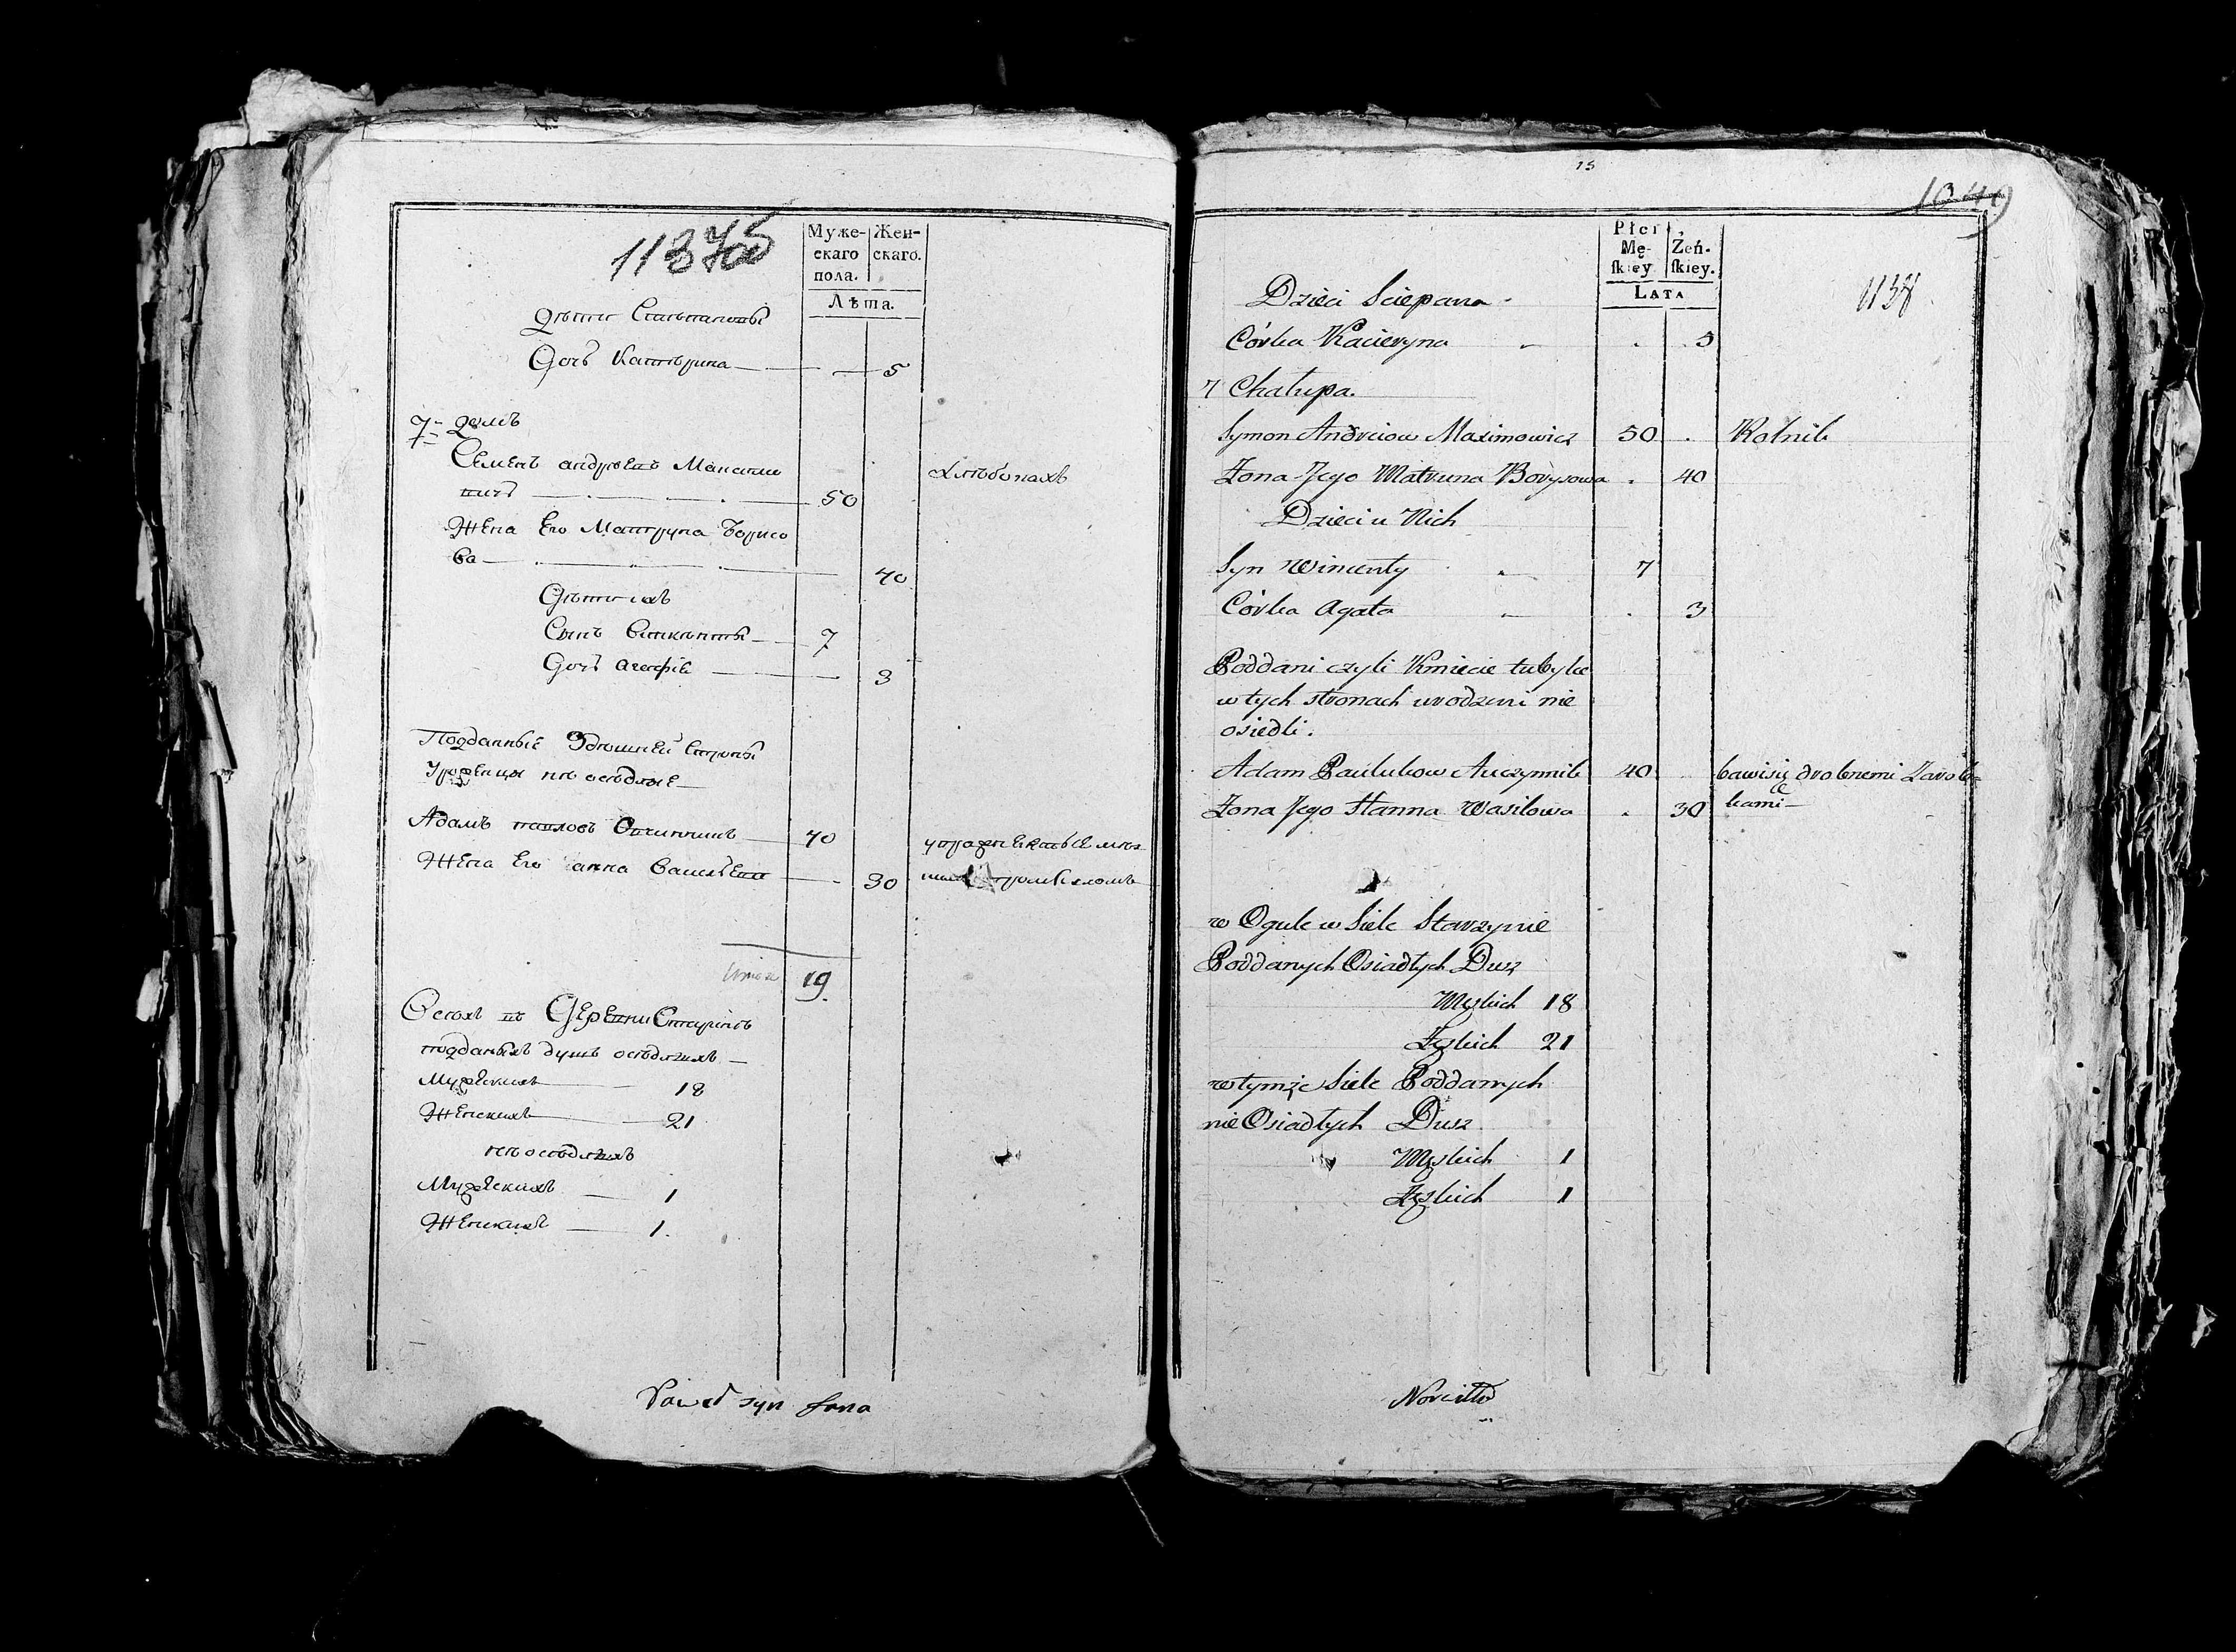 Муже-
скаго
пола.
Жен-
скаго.
Лѣта.
Дѣти
Дочь Катерина 5
7 домъ
Семенъ андреевъ Максимо
вичь 50
хлѣбопахъ
Жена Его Матруна Борисо
ва 40
Дѣти ихъ
Сынъ Викенты 7
Дочь Агафiя 3
Подданные Здешней Стороны
Уроженцы не оседлые
Адамъ павловъ 40
Жена Его анна 30
19
Всехъ въ Деревни Старине
подданыхъ душъ оседлыхъ
Мужескихъ 18
Женскихъ 21
не оседлыхъ
Мужескихъ 1
Женскихъ 1.
Paweł syn Jana
15
1049
1138
Płci
Mę-
skiey
Żeń-
skiey.
LATA
Dzieci Sciepana
Córka Kacieryna 5
7 Chałupa.
Symon Andreiow Maximowicz 50 Rolnik
Żona Jego Matruna Borysowa 40
Dzieci u Nich
Syn Wincenty 7
Córka Agata 3
Poddani czyli Kmiecie tubylce
w tych stronach urodzeni nie
osiedli.
Adam Paulukow 40 bawi się drobnemi Zarob-
Żona Jego Hanna Wasilowa 30 kami
w Ogule w Siele Starzynie
Poddanych Osiadłych Dusz
Męskich 18
Żęskich 21
w tymże Siele Poddanych
nie Osiadłych Dusz
Męskich 1
Żęskich 1